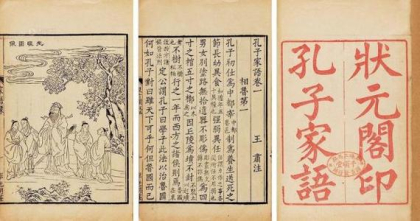 狀元閣印
孔子家語
孔子家語卷一
王肅注
相魯第一
孔子初仕爲中都宰制爲養生送死之
節長幼異食強弱異任
男女別塗路無拾遺器不彫僞爲四
寸之棺五寸之椁因丘陵爲墳不封
不樹行之一年而西方之諸侯則焉
定公謂孔子曰學子此法以治魯國
何如孔子對曰雖天下可乎何但魯國而已